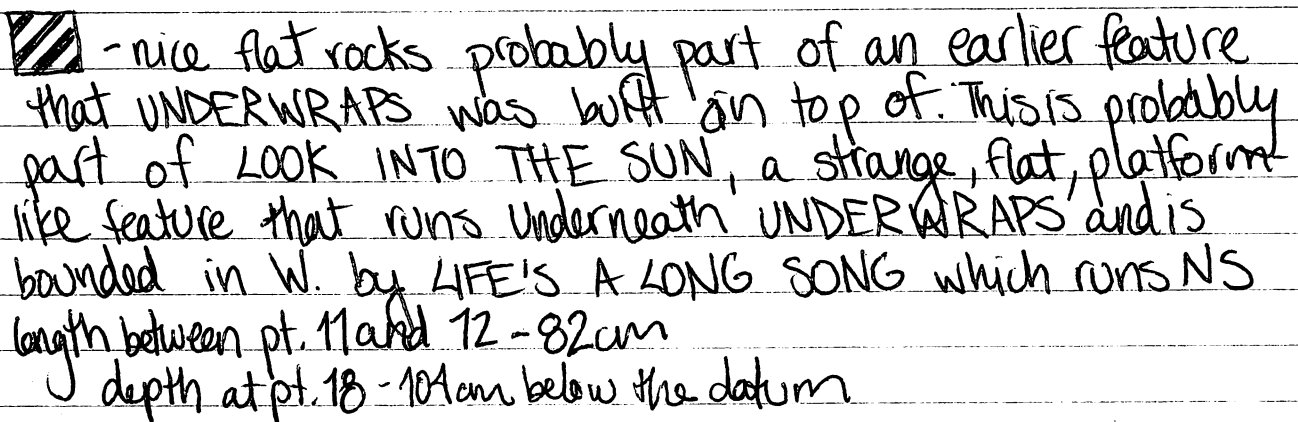 -nice flat rocks probably part of an earlier feature
that UNDERWRAPS was built on top of. This is probably
part of LOOK INTO THE SUN, a strange, flat, platform-
like feature that runs underneath UNDERWRAPS and is
bounded in W. by LIFE'S A LONG SONG which runs NS
length between pt. 11 and 12 - 82cm
depth at pt. 18 - 104cm below the datum